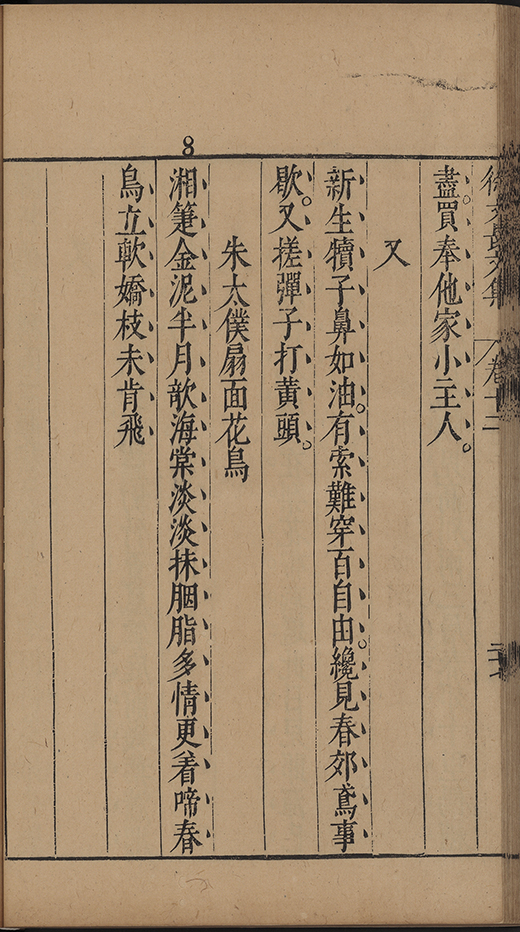 徐文長文集 卷十二
盡買奉他家小主人。
又
新生犢子鼻如油。有索難穿百自由。纔見春郊鳶事
歇。又搓彈子打黃頭。
朱太僕扇面花鳥
湘箑金泥半月歆海棠淡淡抹胭脂多情更着啼春
鳥立軟嬌枝未肯飛
8